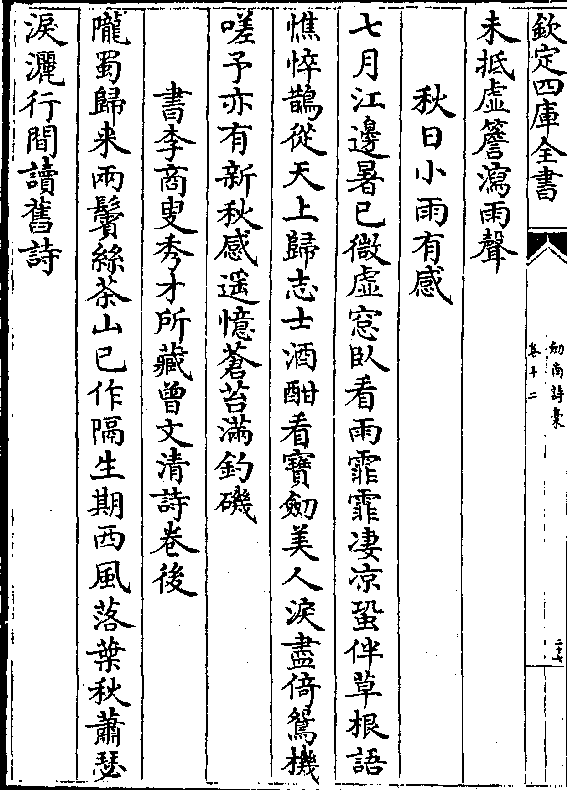 欽定四庫全書
劒南詩稾
卷十二
未抵虛簷瀉雨聲
秋日小雨有感
七月江邊暑已微虛窓臥看雨霏霏凄凉蛩伴草根語
憔悴鵲從天上歸志士酒酣看寶劒美人淚盡倚鴛機
嗟予亦有新秋感遥憶蒼苔滿釣磯
書李商叟秀才所藏曾文清詩卷後
隴蜀歸来兩鬢絲茶山已作隔生期西風落葉秋蕭瑟
淚灑行間讀舊詩